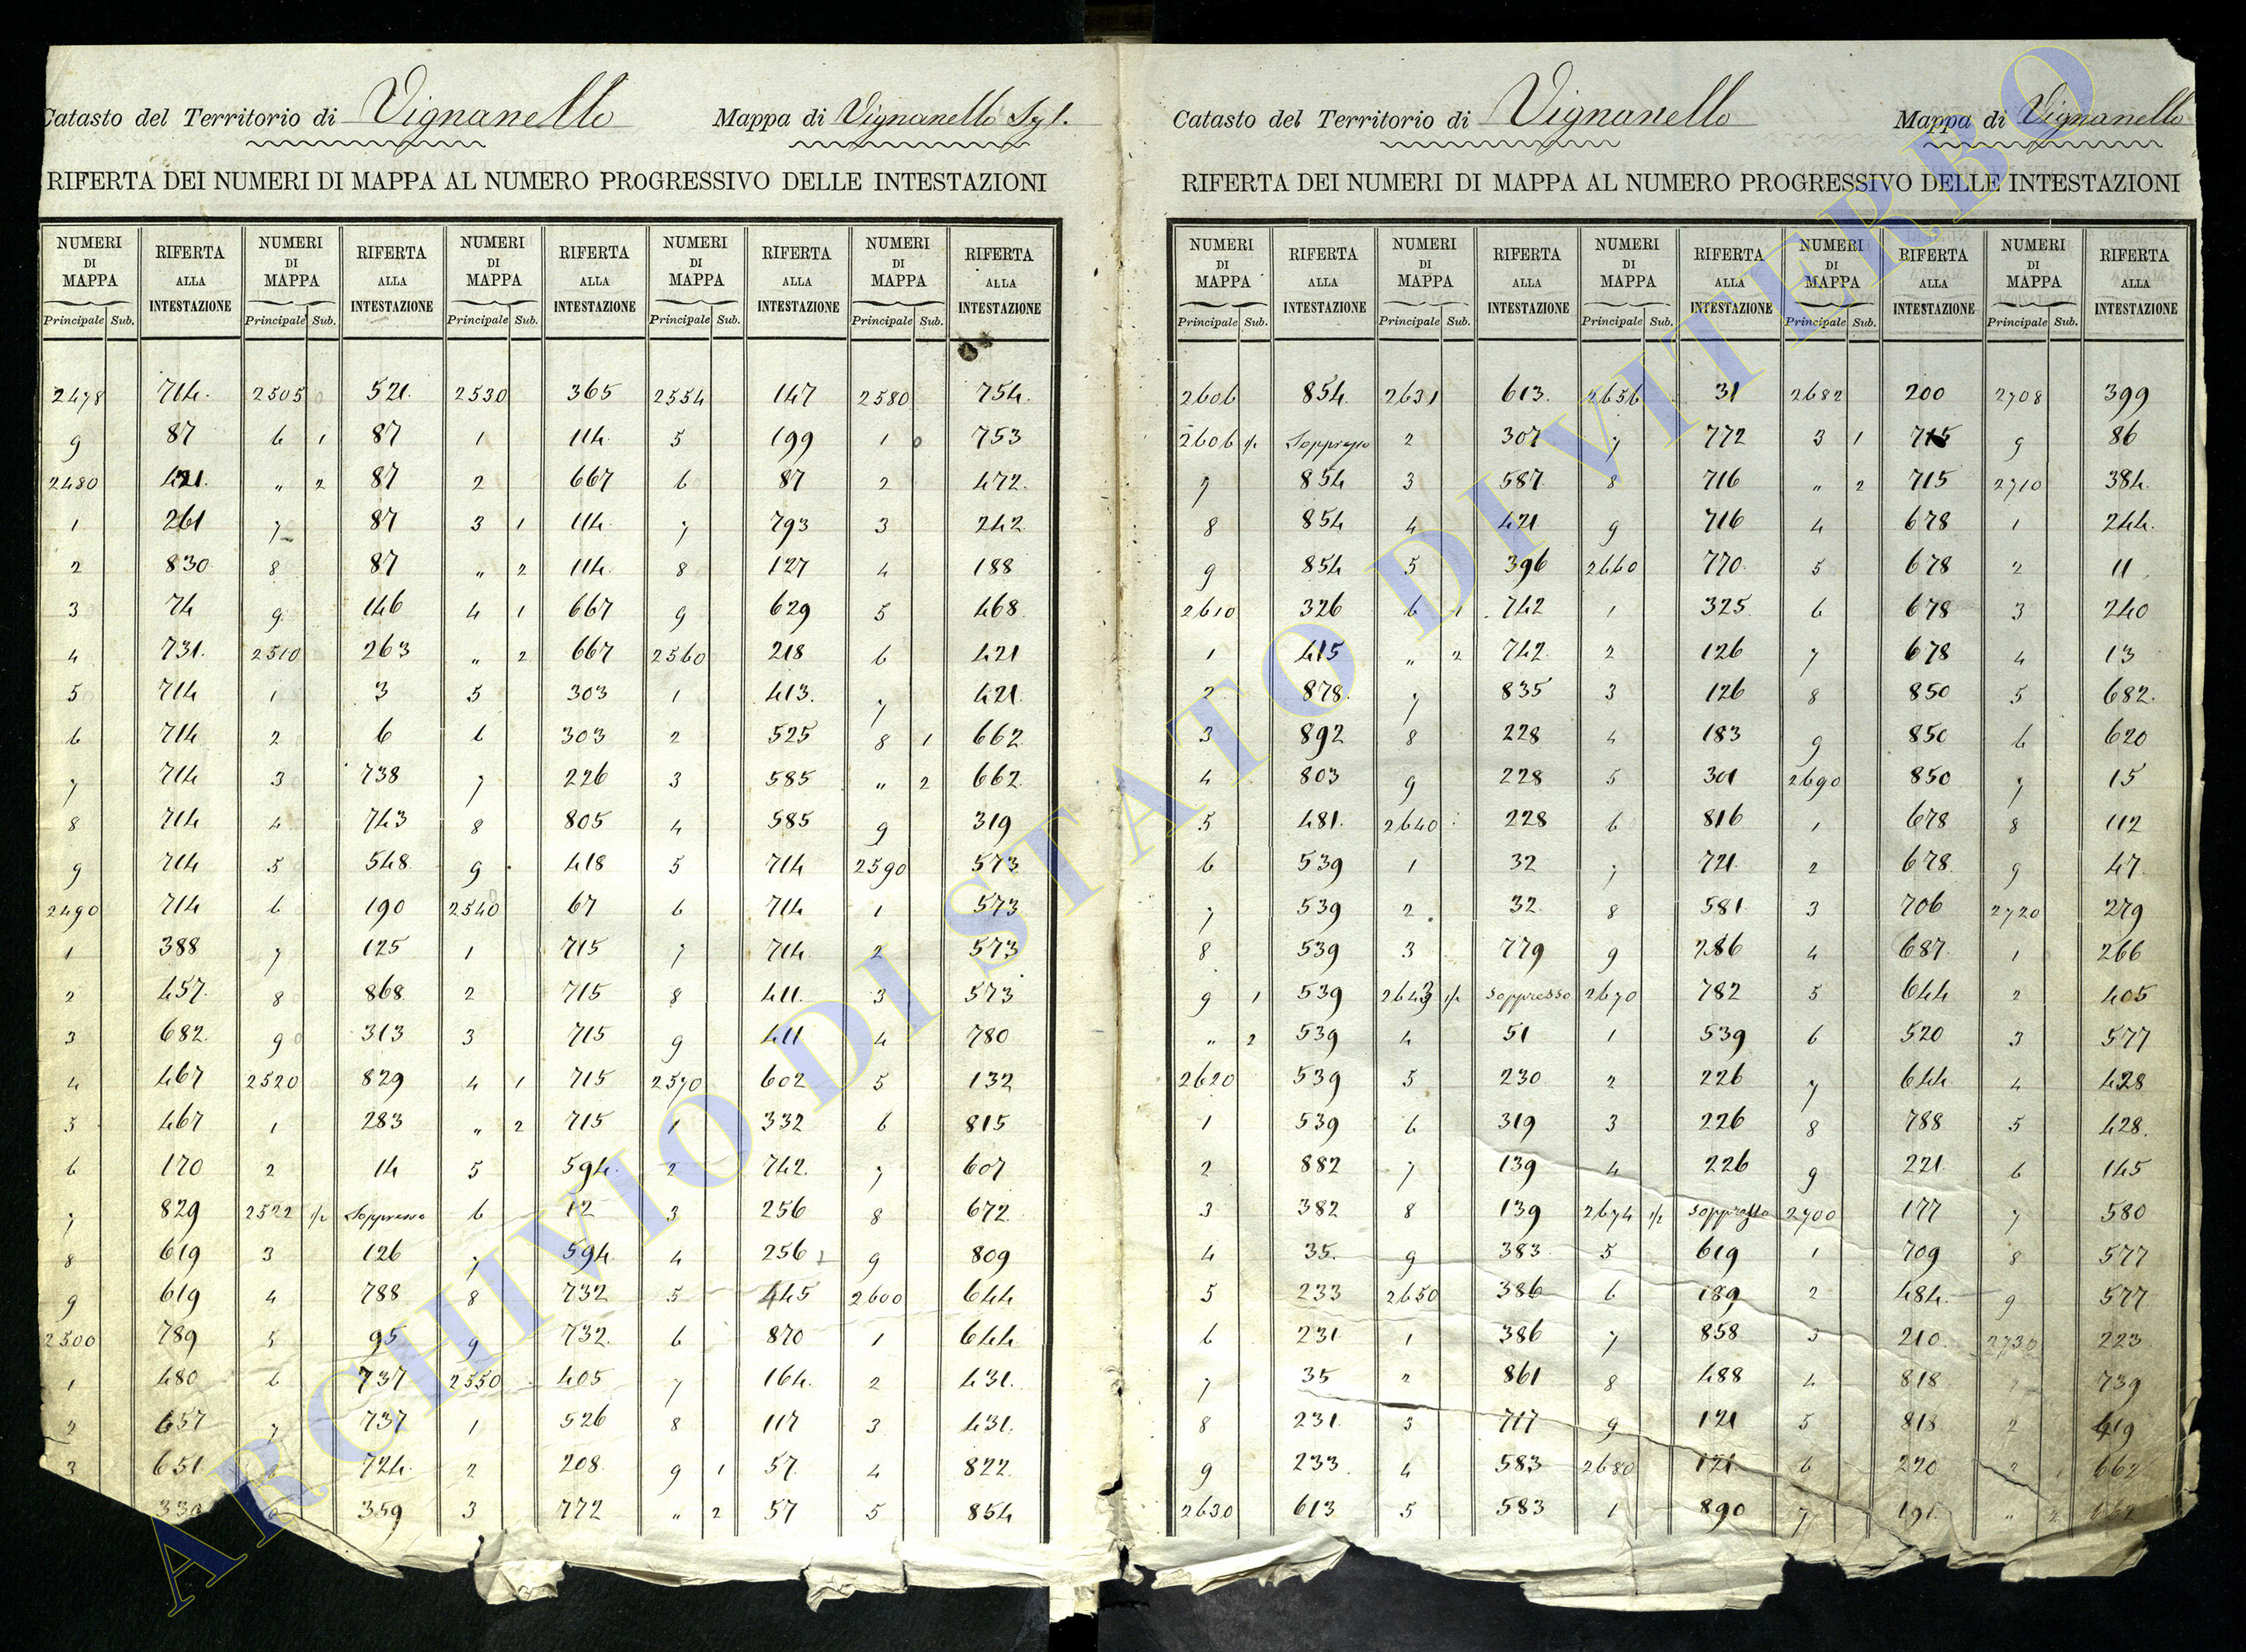 Catasto del Territorio di Vignanello Mappa di Vignanello Sez. 1.
RIFERTA DEI NUMERI DI MAPPA AL NUMERO PROGRESSIVO DELLE INTESTAZIONI
NUMERI DI MAPPA RIFERTA ALLA INTESTAZIONE NUMERI DI MAPPA RIFERTA ALLA INTESTAZIONE NUMERI DI MAPPA RIFERTA ALLA INTESTAZIONE NUMERI DI MAPPA RIFERTA ALLA INTESTAZIONE NUMERI DI MAPPA RIFERTA ALLA INTESTAZIONE
Principale Sub. Principale Sub. Principale Sub. Principale Sub. Principale Sub.
2478 714. 2505 521. 2530 365 2554 147 2580 754.
9 87 6 1 87 1 114. 5 199 1 753
2480 421. " 2 87 2 667 6 87 2 472.
1 261 7 87 3 1 114. 7 793 3 242.
2 830 8 87 " 2 114. 8 127 4 188
3 74 9 146 4 1 667 9 629 5 468.
4 731. 2510 263 " 2 667 2560 218 6 421
5 714 1 3 5 303 1 413. 7 421.
6 714 2 6 6 303 2 525 8 1 662.
7 714 3 738 7 226 3 585 " 2 662.
8 714 4 743 8 805 4 585 9 319
9 714 5 548 9 418 5 714 2590 573
2490 714 6 190 2540 67 6 714 1 573
1 388 7 125 1 715 7 714. 2 573
2 457. 8 868 2 715 8 411. 3 573
3 682. 9 313 3 715 9 411 4 780
4 467 2520 829 4 1 715 2570 602 5 132
5 467 1 283 " 2 715 1 332 6 815
6 170 2 14 5 594. 2 742. 7 607
7 829 2522 1/2 Soppresso 6 12 3 256 8 672.
8 619 3 126 7 594. 4 256 9 809
9 619 4 788 8 732 5 445 2600 644
2500 789 5 95 9 732. 6 870 1 644
1 480 6 737 2550 405 7 164. 2 431.
2 657 7 737 1 526 8 117 3 431.
3 651 724. 2 208. 9 1 57. 4 822.
330 359 3 772 " 2 57 5 854
Catasto del Territorio di Vignanello Mappa di Vignanello
RIFERTA DEI NUMERI DI MAPPA AL NUMERO PROGRESSIVO DELLE INTESTAZIONI
NUMERI DI MAPPA RIFERTA ALLA INTESTAZIONE NUMERI DI MAPPA RIFERTA ALLA INTESTAZIONE NUMERI DI MAPPA RIFERTA ALLA INTESTAZIONE NUMERI DI MAPPA RIFERTA ALLA INTESTAZIONE NUMERI DI MAPPA RIFERTA ALLA INTESTAZIONE
Principale Sub. Principale Sub. Principale Sub. Principale Sub. Principale Sub.
2606 854. 2631 613. 2656 31 2682 200 2708 399
2606 1/2 Soppresso 2 307 7 772 3 1 715 9 86
7 854 3 587. 8 716 " 2 715 2710 384.
8 854 4 421 9 716 4 678 1 244.
9 854 5 396 2660 770. 5 678 2 11
2610 326 6 1 742 1 325 6 678 3 240
1 415 " 2 742. 2 126 7 678 4 13
2 878. 7 835 3 126 8 850 5 682.
3 892 8 228 4 183 9 850 6 620
4 803 9 228 5 301 2690 850 7 15
5 481. 2640 228 6 816 1 678 8 112
6 539 1 32 7 721. 2 678. 9 47.
7 539 2 32. 8 581. 3 706 2720 279
8 539 3 779 9 286 4 687. 1 266
9 1 539 2643 1/2 Soppresso 2670 782 5 644 2 405
" 2 539 4 51 1 539 6 520 3 577
2620 539 5 230 2 226 7 644 4 428
1 539 6 319 3 226 8 788 5 428.
2 882 7 139 4 226 9 221. 6 145
3 382 8 139 2674 1/2 Soppresso 2700 177 7 580
4 35. 9 383. 5 619 1 709 8 577
5 233 2650 386 6 189 2 484. 9 577
6 231 1 386 7 858 3 210. 2730 223
7 35 2 861 8 488 4 818 739
8 231. 3 717 9 121 5 818 2 419
9 233. 4 583 2680 121. 6 220 662
2630 613 5 583 1 890 7 191. " 2 662
ARCHIVIO DI STATO DI VITERBO